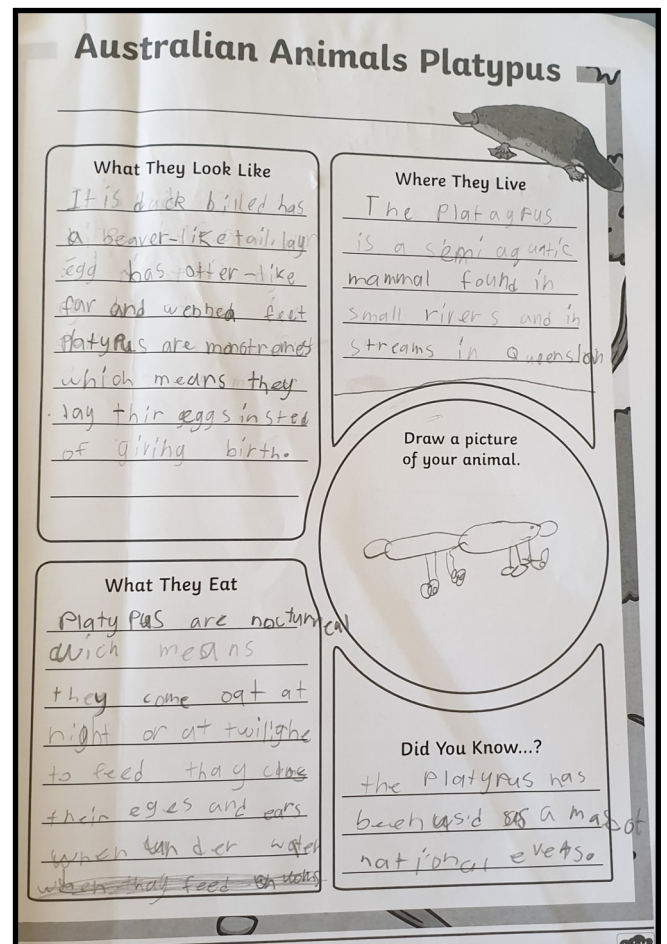 Australian Animals Platypus
What They Look Like
It is duck billed has
a beaver-like tail, lay
egg has otter-like
fur and webbed feet
Platypus are monotremes
which means they
lay thir eggs insted
of giving birth.
Where They Live
The Plataypus
is a semi aquatic
mammal found in
small rivers and in
streams in Queenslan
Draw a picture
of your animal.
What They Eat
Platypus are nocturneal
which means
they come oat at
night or at twilighe
to feed thay close
their eyes and ears
when under water
when thay feed on
Did You Know...?
the Platypus has
been usd as a mascot
national evets.